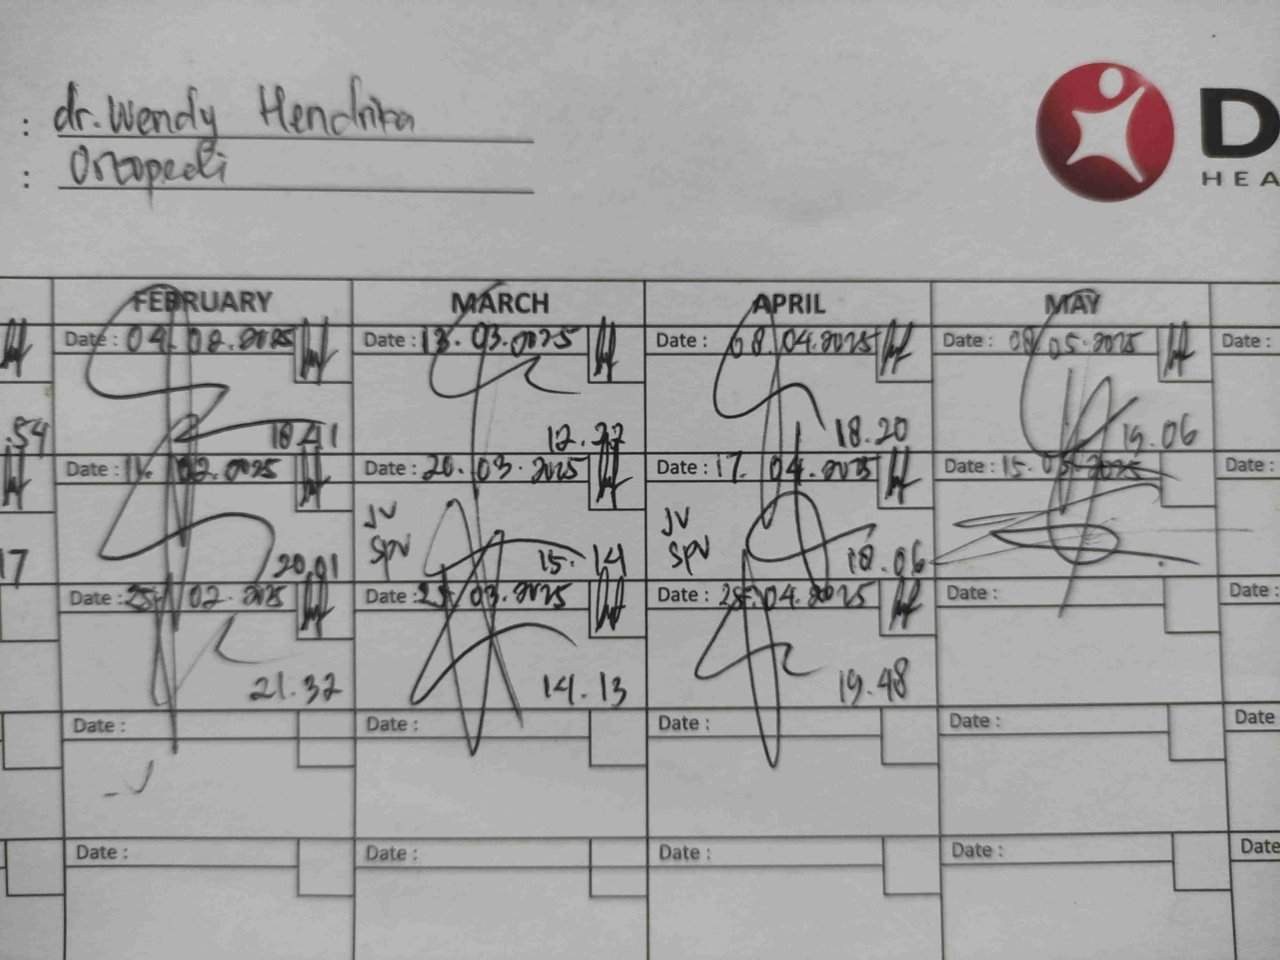 : dr. Wendy Hendrika
: Ortopedi
D
HEA
FEBRUARY MARCH APRIL MAY
Date : 04. 02. 2025 Date : 13. 03. 2025 Date : 08. 04. 2025 Date : 08. 05. 2025 Date :
.54 18.41 12. 27 18.20 19.06
Date : 02. 2025 Date : 20. 03. 2025 Date : 17. 04. 2025 Date : 15. 05. 2025 Date :
JV JV
SPV SPV
17 20.01 15. 14 18.06
Date : 25. 02. 2025 Date : 03. 2025 Date : 28. 04. 2025 Date : Date :
21.32 14.13 19.48
Date : Date : Date : Date : Date
Date : Date : Date : Date : Date